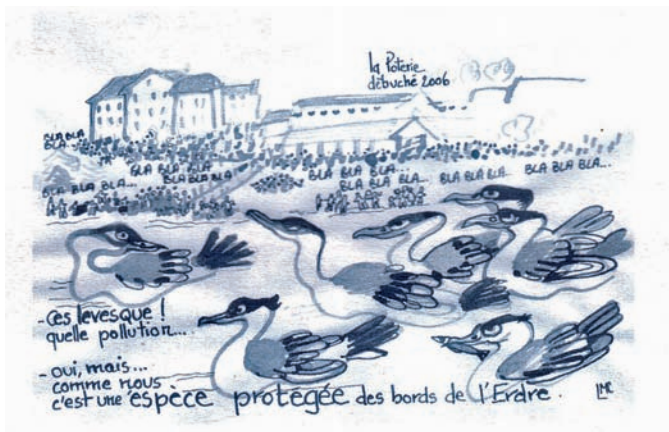 la Poterie
débuché 2006
BLA BLA
BLA...
BLA BLA BLA
BLA BLA BLA
BLA BLA BLA...
BLA BLA BLA...
BLA BLA BLA...
BLA BLA BLA..
BLA BLA BLA...
- Ces levesque !
quelle pollution...
- oui, mais...
comme nous
c'est une espèce protegée des bords de l'Erdre.